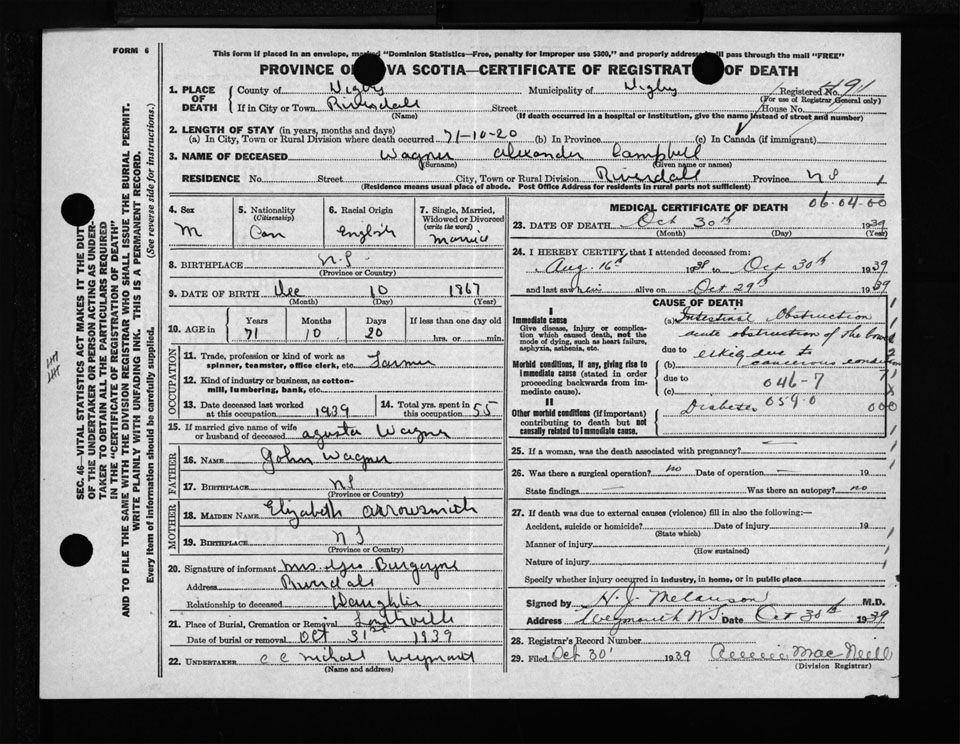 FORM 6
This form if placed in an envelope, marked "Dominion Statistics—Free, penalty for improper use $300," and properly addressed will pass through the mail "FREE"
PROVINCE OF NOVA SCOTIA—CERTIFICATE OF REGISTRATION OF DEATH
1. PLACE OF DEATH County of Digby Municipality of Digby Registered No. 491
(For use of Registrar General only)
If in City or Town Riversdall Street House No.
(Name) (If death occurred in a hospital or institution, give the name instead of street and number)
2. LENGTH OF STAY (in years, months and days)
(a) In City, Town or Rural Division where death occurred 71-10-20 (b) In Province (c) In Canada (if immigrant)
3. NAME OF DECEASED Wagner Alexander Campbell
(Surname) (Given name or names)
RESIDENCE No. Street City, Town or Rural Division Riverdall Province NS
(Residence means usual place of abode. Post Office Address for residents in rural parts not sufficient)
4. Sex M
5. Nationality (Citizenship) Can
6. Racial Origin English
7. Single, Married, Widowed or Divorced (write the word) Married
8. BIRTHPLACE N.S.
(Province or Country)
9. DATE OF BIRTH Dec 10 1867
(Month) (Day) (Year)
10. AGE in Years Months Days If less than one day old
71 10 20 hrs. or min.
OCCUPATION
11. Trade, profession or kind of work as spinner, teamster, office clerk, etc. Farmer
12. Kind of industry or business, as cotton-mill, lumbering, bank, etc.
13. Date deceased last worked at this occupation 1939
14. Total yrs. spent in this occupation 55
15. If married give name of wife or husband of deceased Agusta Wagner
FATHER
16. NAME John Wagner
17. BIRTHPLACE NS
(Province or Country)
MOTHER
18. MAIDEN NAME Elizabeth Arrowsmith
19. BIRTHPLACE NS
(Province or Country)
20. Signature of informant Mrs. Geo Burgoyne
Address Riverdale
Relationship to deceased Daughter
21. Place of Burial, Cremation or Removal
Date of burial or removal Oct 31st 1939
22. UNDERTAKER C C Weymouth
(Name and address)
MEDICAL CERTIFICATE OF DEATH 06-04-00
23. DATE OF DEATH Oct 30th 1939
(Month) (Day) (Year)
24. I HEREBY CERTIFY, that I attended deceased from:
Aug. 16th 1938 to Oct 30th 1939
and last saw him alive on Oct 29th 1939
CAUSE OF DEATH
I
Immediate cause
Give disease, injury or complication which caused death, not the mode of dying, such as heart failure, asphyxia, asthenia, etc.
(a) Intestinal Obstruction
acute obstruction of the bowel
due to
(b) due to cancerous condition
Morbid conditions, if any, giving rise to immediate cause (stated in order proceeding backwards from immediate cause).
due to
(c) 046-7
II
Other morbid conditions (if important) contributing to death but not causally related to immediate cause.
Diabetes 059-0 000
25. If a woman, was the death associated with pregnancy?
26. Was there a surgical operation? no Date of operation
State findings Was there an autopsy? no
27. If death was due to external causes (violence) fill in also the following:—
Accident, suicide or homicide? Date of injury 19
(State which)
Manner of injury
(How sustained)
Nature of injury
Specify whether injury occurred in industry, in home, or in public place
Signed by H. J. Melanson M.D.
Address Weymouth NS Date Oct 30th 1939
28. Registrar's Record Number
29. Filed Oct 30 1939 MacNeill
(Division Registrar)
SEC. 46—VITAL STATISTICS ACT MAKES IT THE DUTY
OF THE UNDERTAKER OR PERSON ACTING AS UNDER-
TAKER TO OBTAIN ALL THE PARTICULARS REQUIRED
IN THE "CERTIFICATE OF REGISTRATION OF DEATH"
AND TO FILE THE SAME WITH THE DIVISION REGISTRAR WHO SHALL ISSUE THE BURIAL PERMIT.
WRITE PLAINLY WITH UNFADING INK. THIS IS A PERMANENT RECORD.
Every item of information should be carefully supplied. (See reverse side for instructions.)